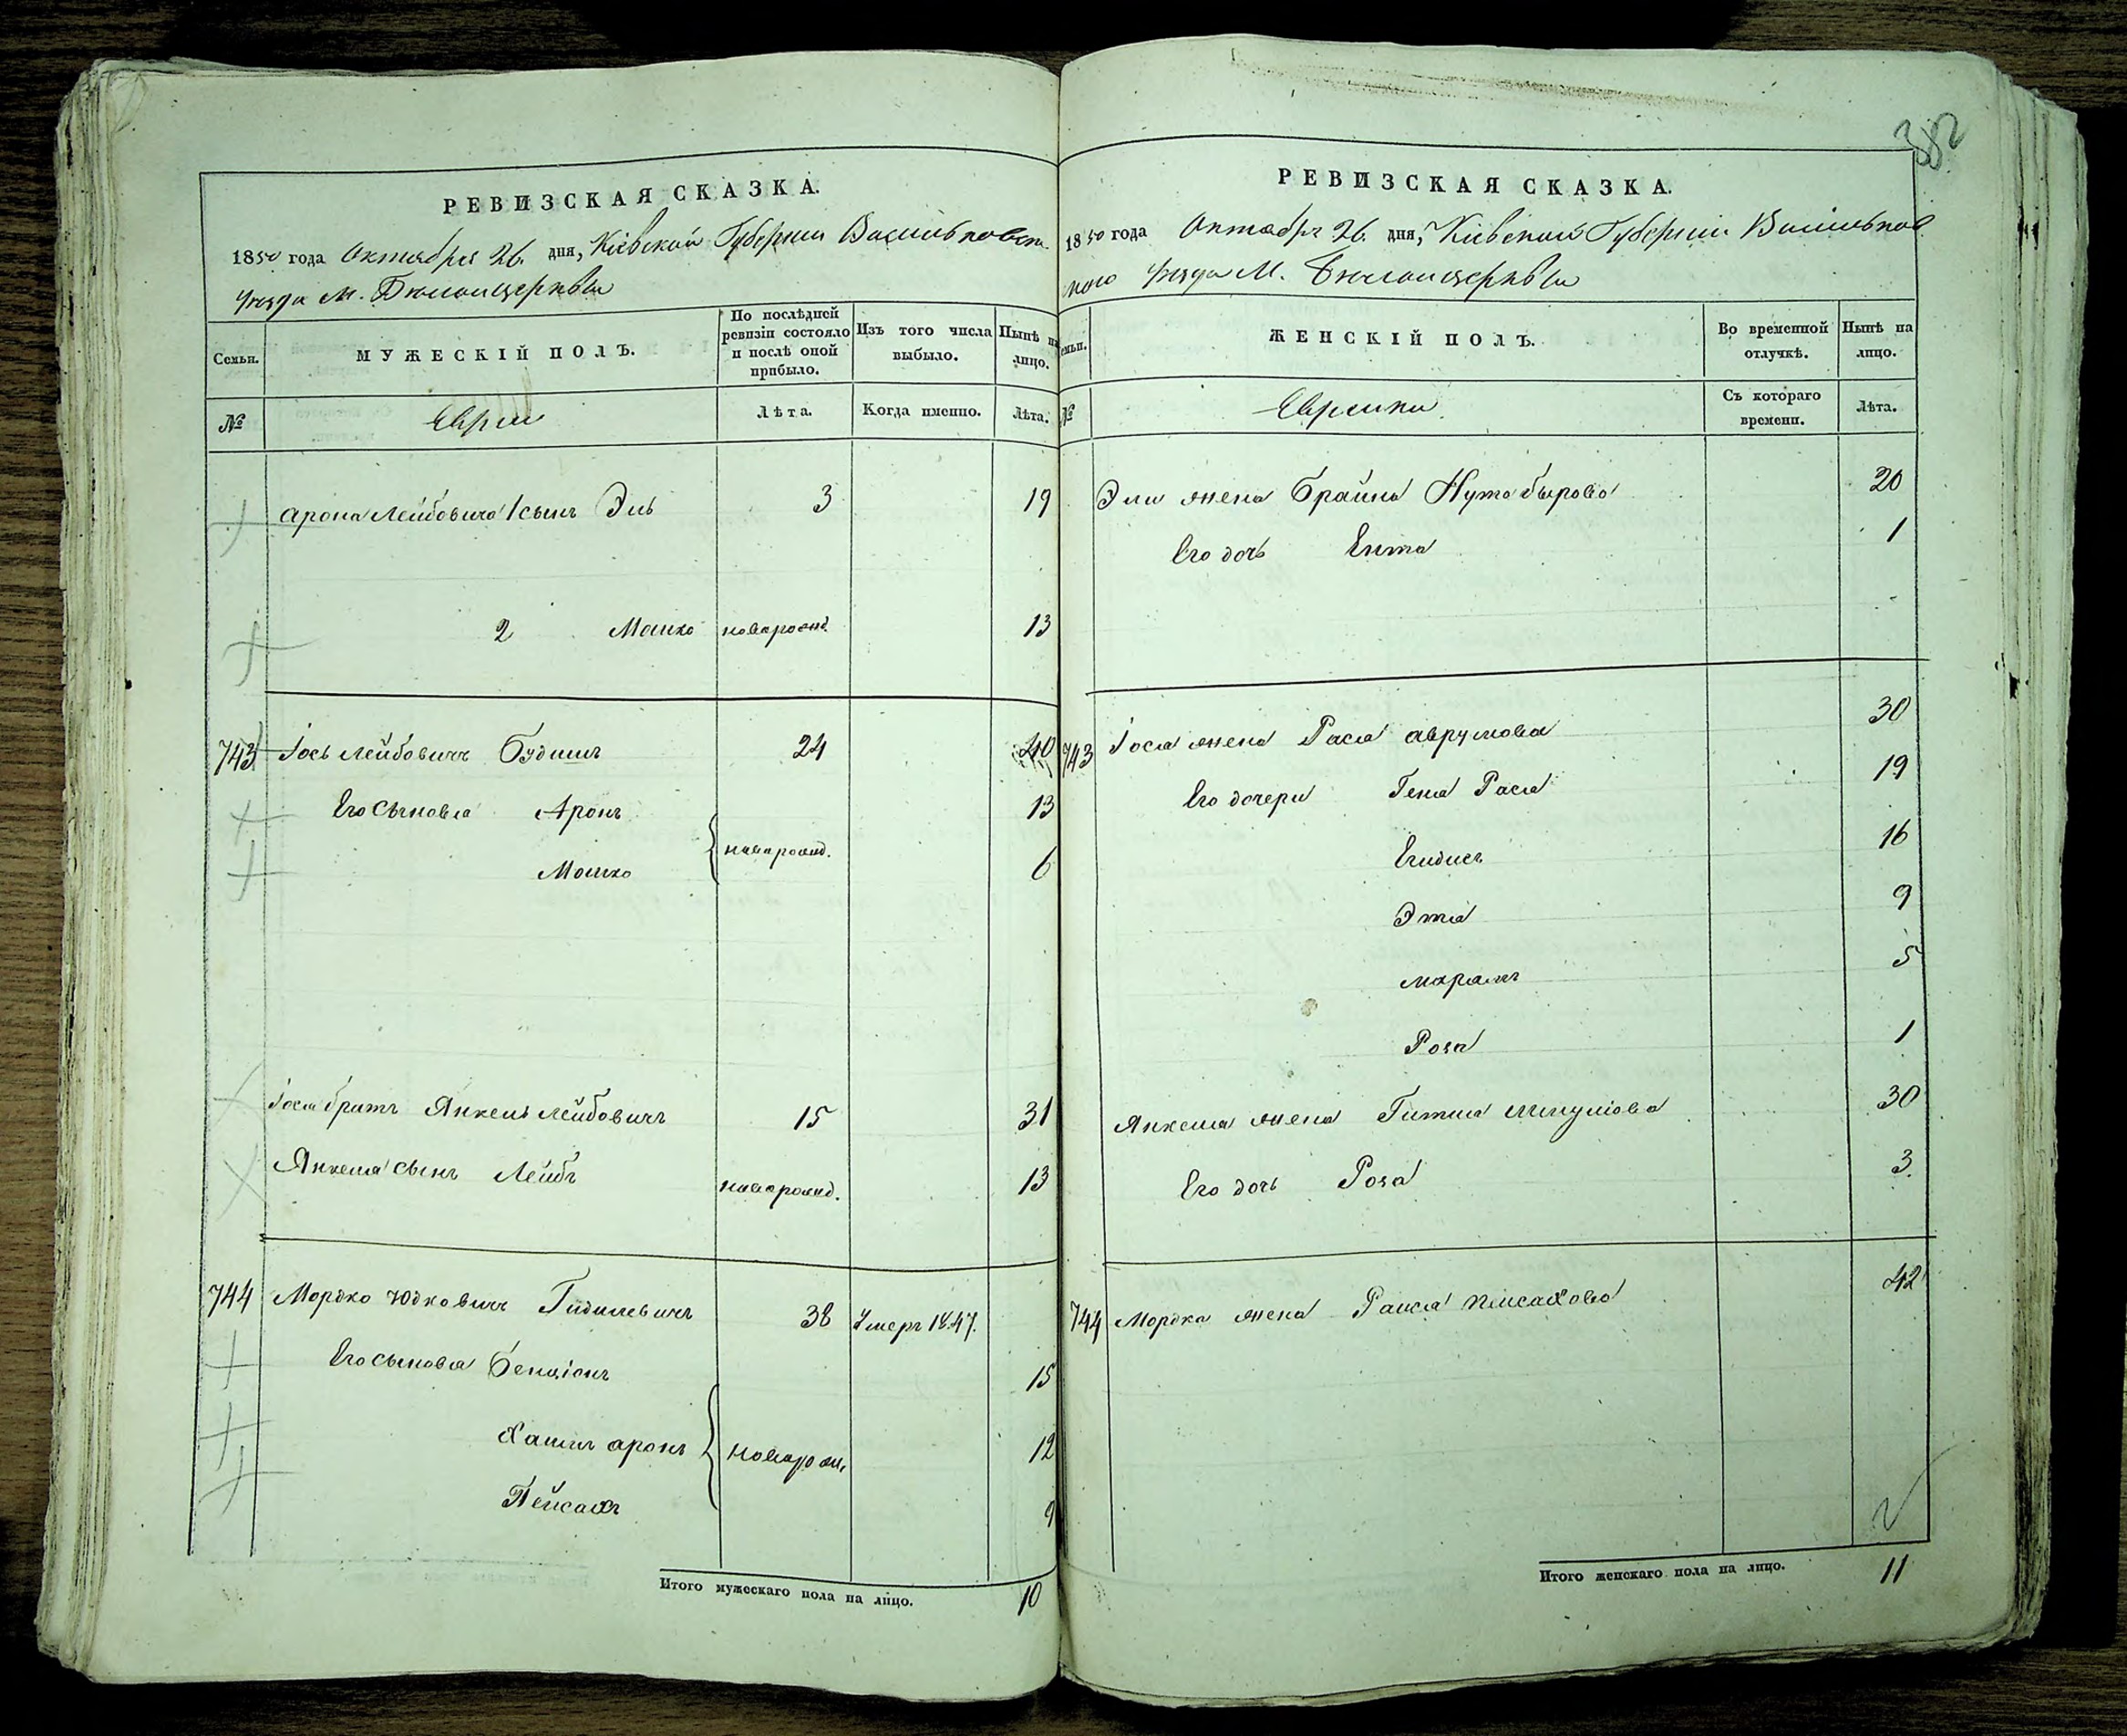 РЕВИЗСКАЯ СКАЗКА.
1850 года Октября 26. дня, Кіевской Губерніи Васильковск.
уезда м. Белоицеркви
Семьи.
МУЖЕСКІЙ ПОЛЪ.
По послѣдней ревизіи состояло и послѣ оной прибыло.
Изъ того числа выбыло.
Нынѣ на лицо.
№
Евреи
Лѣта.
Когда именно.
Лѣта.
Арона Лейбовича 1 сынъ Эль 3 19
2 Мошко новорожд. 13
743 Іось Лейбовичъ Будишъ 24 40
Его Сыновья Аронъ 13
новорожд.
Мошко 6
Іося братъ Янкель Лейбовичъ 15 31
Янкеля сынъ Лейбъ новорожд. 13
744 Мордко Юдковичъ 38 Умеръ 1847. 
Его сыновья Бенціонъ 15
Хаимъ Аронъ новорож. 12
Пейсахъ 9
Итого мужескаго пола на лицо. 10
382
РЕВИЗСКАЯ СКАЗКА.
1850 года Октября 26. дня, Кіевской Губерніи Васильков
ского уезда М. Белоицеркви
Семьи.
ЖЕНСКІЙ ПОЛЪ.
Во временной отлучкѣ.
Нынѣ на лицо.
№
Еврейки
Съ котораго времени.
Лѣта.
Эли жена Брайна 20
Его дочь Ента 1
743 Іося жена Рася Аврумова 30
Его дочери Геня Рася 19
16
Эта 9
Марьямъ 5
Роза 1
Янкеля жена Гитля Шмулiова 30
Его дочь Роза 3
744 Мордка жена Раися Пейсахова 42
Итого женскаго пола на лицо. 11